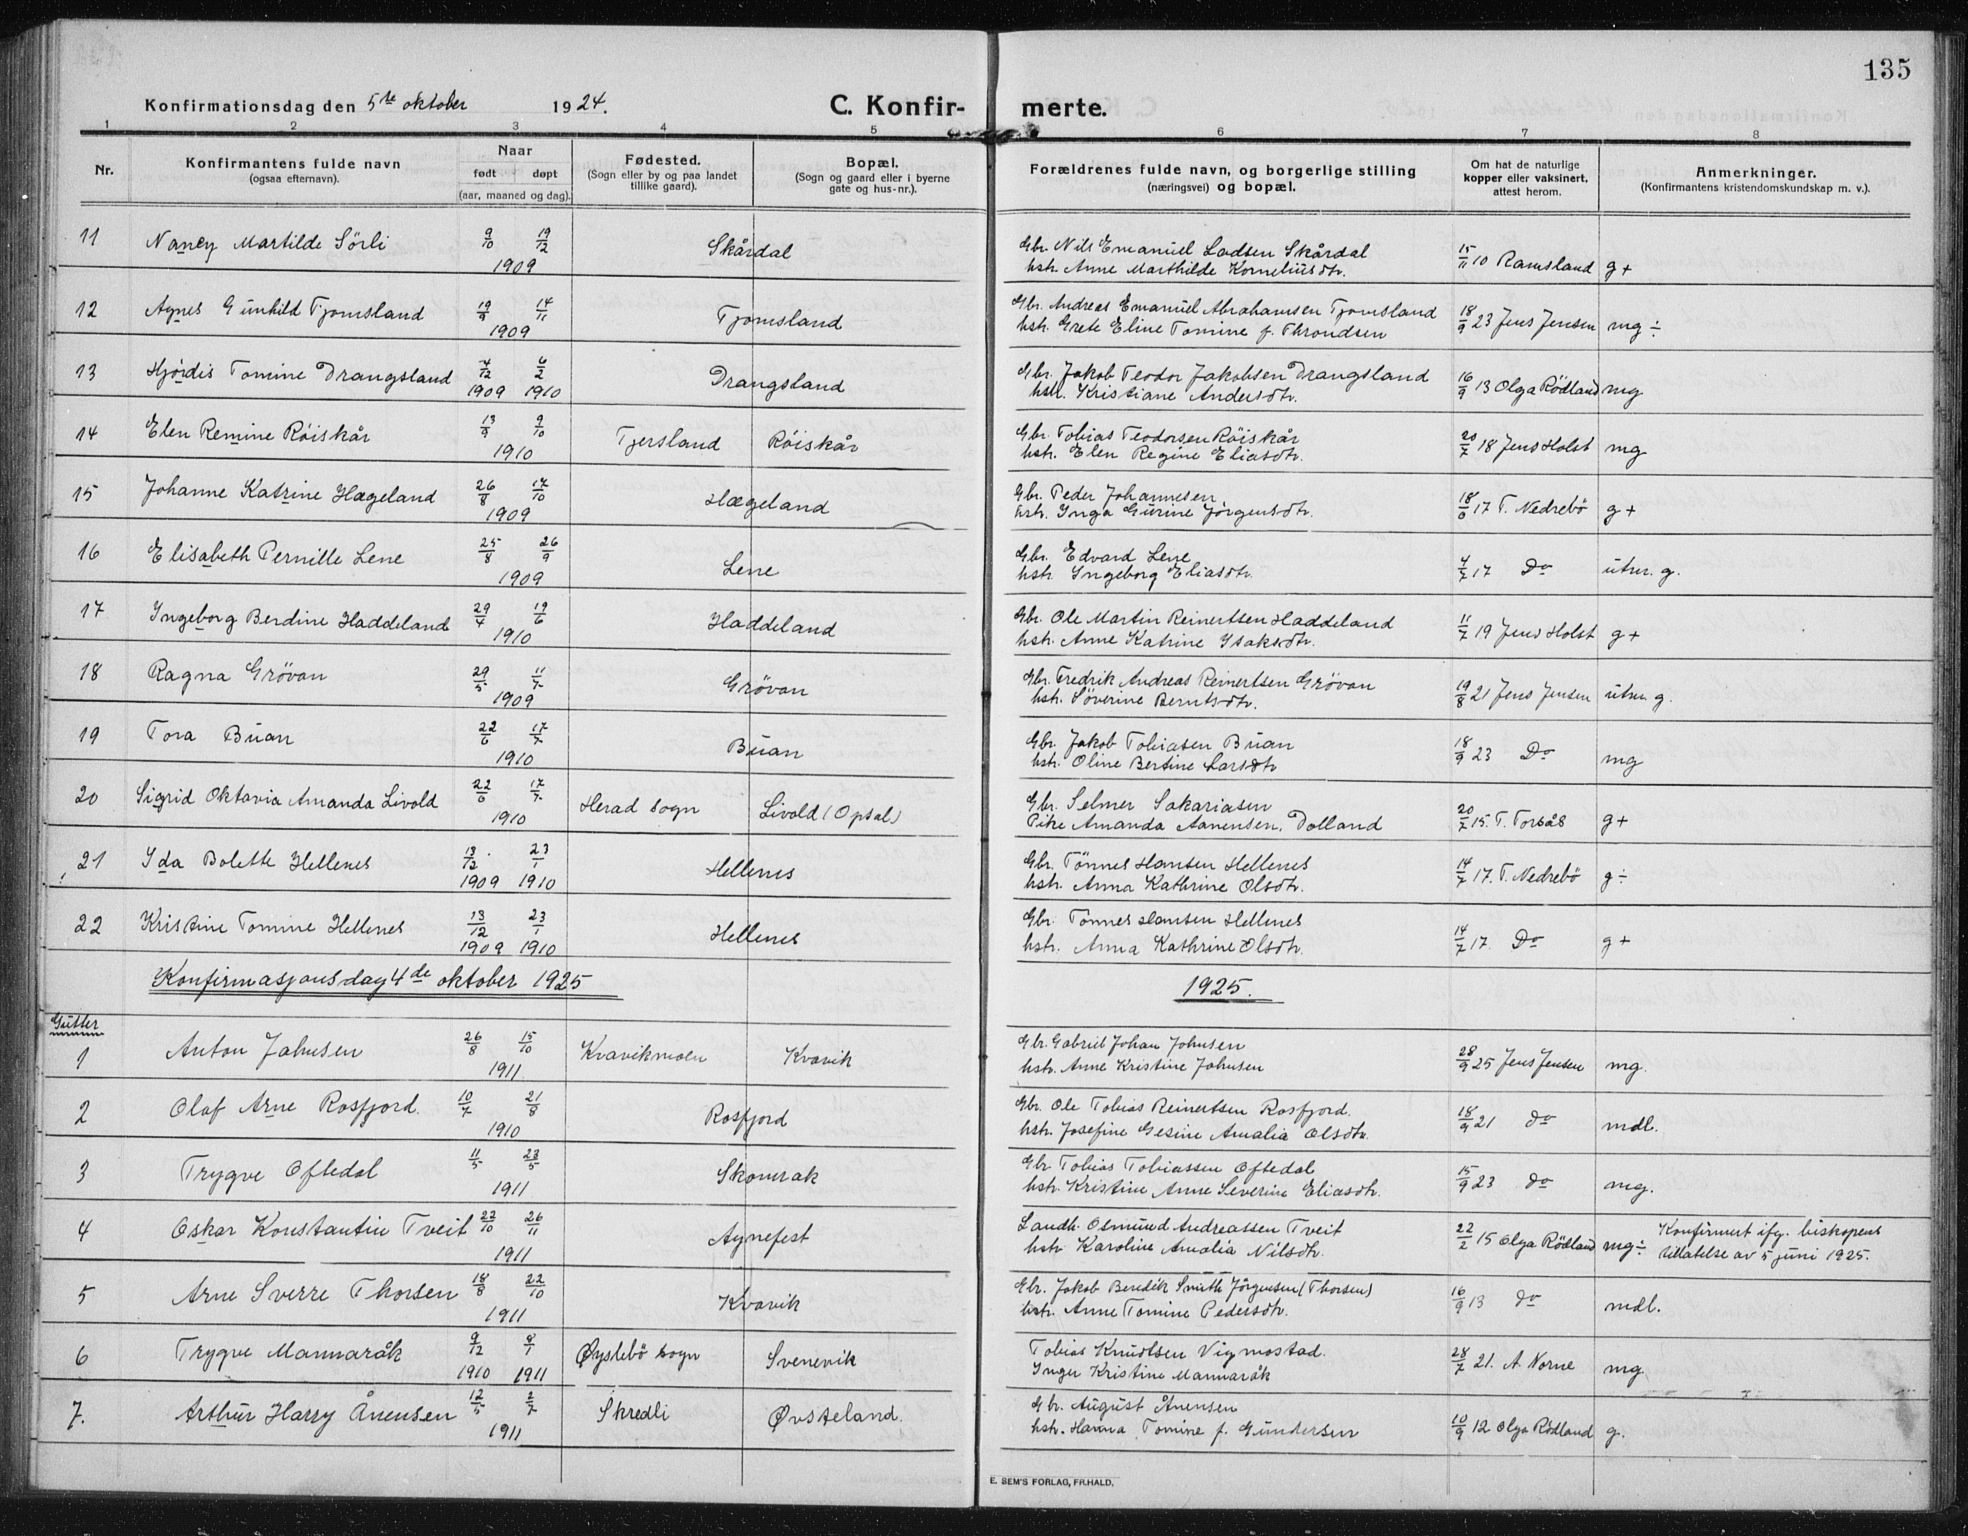 135
Konfirmationsdag den 5te oktober 1924.
C. Konfirmerte.
1 2 3 4 5 6 7 8
Nr.
Konfirmantens fulde navn
(ogsaa efternavn).
Naar
født døpt
(aar, maaned og dag).
Fødested.
(Sogn eller by og paa landet
tillike gaard).
Bopæl.
(Sogn og gaard eller i byerne
gate og hus-nr.).
Forældrenes fulde navn, og borgerlige stilling
(næringsvei) og bopæl.
Om hat de naturlige
kopper eller vaksinert,
attest herom.
Anmerkninger.
(Konfirmantens kristendomskundskap m. v.).
11 Nancy Martilde Sörli 9/10 19/12 Skårdal Gbr. Nils Emanuel Ladsen Skårdal 15/11 10 Ramsland g+
1909 hstr. Anne Marthilde Korneliusdtr.
12 Agnes Gunhild Tjomsland 19/9 14/11 Tjomsland Gbr. Andreas Emanuel Abrahamsen Tjomsland 18/9 23 Jens Jensen mg÷
1909 hstr. Grete Eline Tomine f. Throndsen
13 Hjördis Tomine Drangsland 4/12 6/2 Drangsland Gbr. Jakob Teodor Jakobsen Drangsland 16/9 13 Olga Rödland mg
1909 1910 hstr. Kristiane Andersdtr.
14 Elen Remine Röiskår 13/9 9/10 Tjersland Röiskår Gbr. Tobias Teodorsen Röiskår 20/7 18 Jens Holst mg
1910 hstr. Elen Regine Eliasdtr.
15 Johanne Katrine Hægeland 26/8 17/10 Hægeland Gbr. Peder Johannesen 18/6 17 T. Nedrebö g+
1909 hstr. Inga Gurine Jörgensdtr.
16 Elisabeth Pernille Lene 25/8 26/9 Lene Gbr. Edvard Lene 4/7 17 Do utm. g.
1909 hstr. Ingeborg Eliasdtr.
17 Ingeborg Berdine Haddeland 29/4 19/6 Haddeland Gbr. Ole Martin Reinertsen Haddeland 11/7 19 Jens Holst g+
1910 hstr. Anne Katrine Isaksdtr.
18 Ragna Grövan 29/5 11/7 Grövan Gbr. Fredrik Andreas Reinertsen Grövan 19/8 21 Jens Jensen utm. g.
1909 hstr. Söverine Berntsdtr.
19 Tora Buan 22/6 17/7 Buan Gbr. Jakob Tobiasen Buan 18/9 23 Do mg
1910 hstr. Oline Bertine Larsdtr
20 Sigrid Oktavia Amanda Livold 22/6 17/7 Herad sogn Livold (Opsal) Gbr. Selmer Sakariasen 20/7 15. T. Torsås g+
1910 Pike Amanda Aanensen, Dolland
21 Ida Bolette Hellenes 13/12 23/1 Hellenes Gbr. Tönnes Hansen Hellenes 14/7 17. T. Nedrebö g÷
1909 1910 hstr. Anna Kathrine Olsdtr.
22 Kristine Tomine Hellenes 13/12 23/1 Hellenes Gbr. Tönnes Hansen Hellenes 14/7 17. Do g+
1909 1910 hstr. Anna Kathrine Olsdtr.
Konfirmasjonsdag 4de oktober 1925 1925.
Gutter
1 Anton Johnsen 26/8 15/10 Kvavikmoen Kvavik Gbr. Gabriel Johan Johnsen 28/9 25 Jens Jensen mg.
1911 hstr. Anne Kristine Johnsen
2 Olaf Arne Rosfjord. 10/7 21/8 Rosfjord Gbr. Ole Tobias Reinertsen Rosfjord. 18/9 21 do mdl.
1910 hstr. Josefine Gesine Amalia Olsdtr.
3 Trygve Oftedal 11/5 23/5 Skomrak Gbr Tobias Tobiassen Oftedal 15/9 23 do mg.
1911 hstr. Kristine Anne Severine Eliasdtr.
4 Oskar Konstantin Tveit 22/10 26/11 Agnefest Landh. Osmund Andreassen Tveit 22/2 15 Olga Rödland mg÷ Konfirmert ifg. biskopens
1911 hstr. Karoline Amalia Nilsdtr. tillatelse av 5 juni 1925.
5 Arne Sverre Thorsen 18/8 22/10 Kvavik Gbr. Jakob Beredik Smith Jörgensen (Thorsen) 16/9 13 do mdl.
1911 hstr. Anne Tomine Pedersdtr.
6 Trygve Mannaråk 9/12 8/1 Øyslebö sogn Svenevik Tobias Knudtsen Vigmostad. 28/7 21. A Norne mg
1910 1911 Inger Kristine Mannaråk
7. Arthur Harry Ånensen 12/5 2/7 Skredli Øvsteland. Gbr. August Ånensen 10/9 12 Olga Rödland g.
1911 hstr. Hanna Tomine f. Gundersen
E. SEM'S FORLAG, FR.HALD.